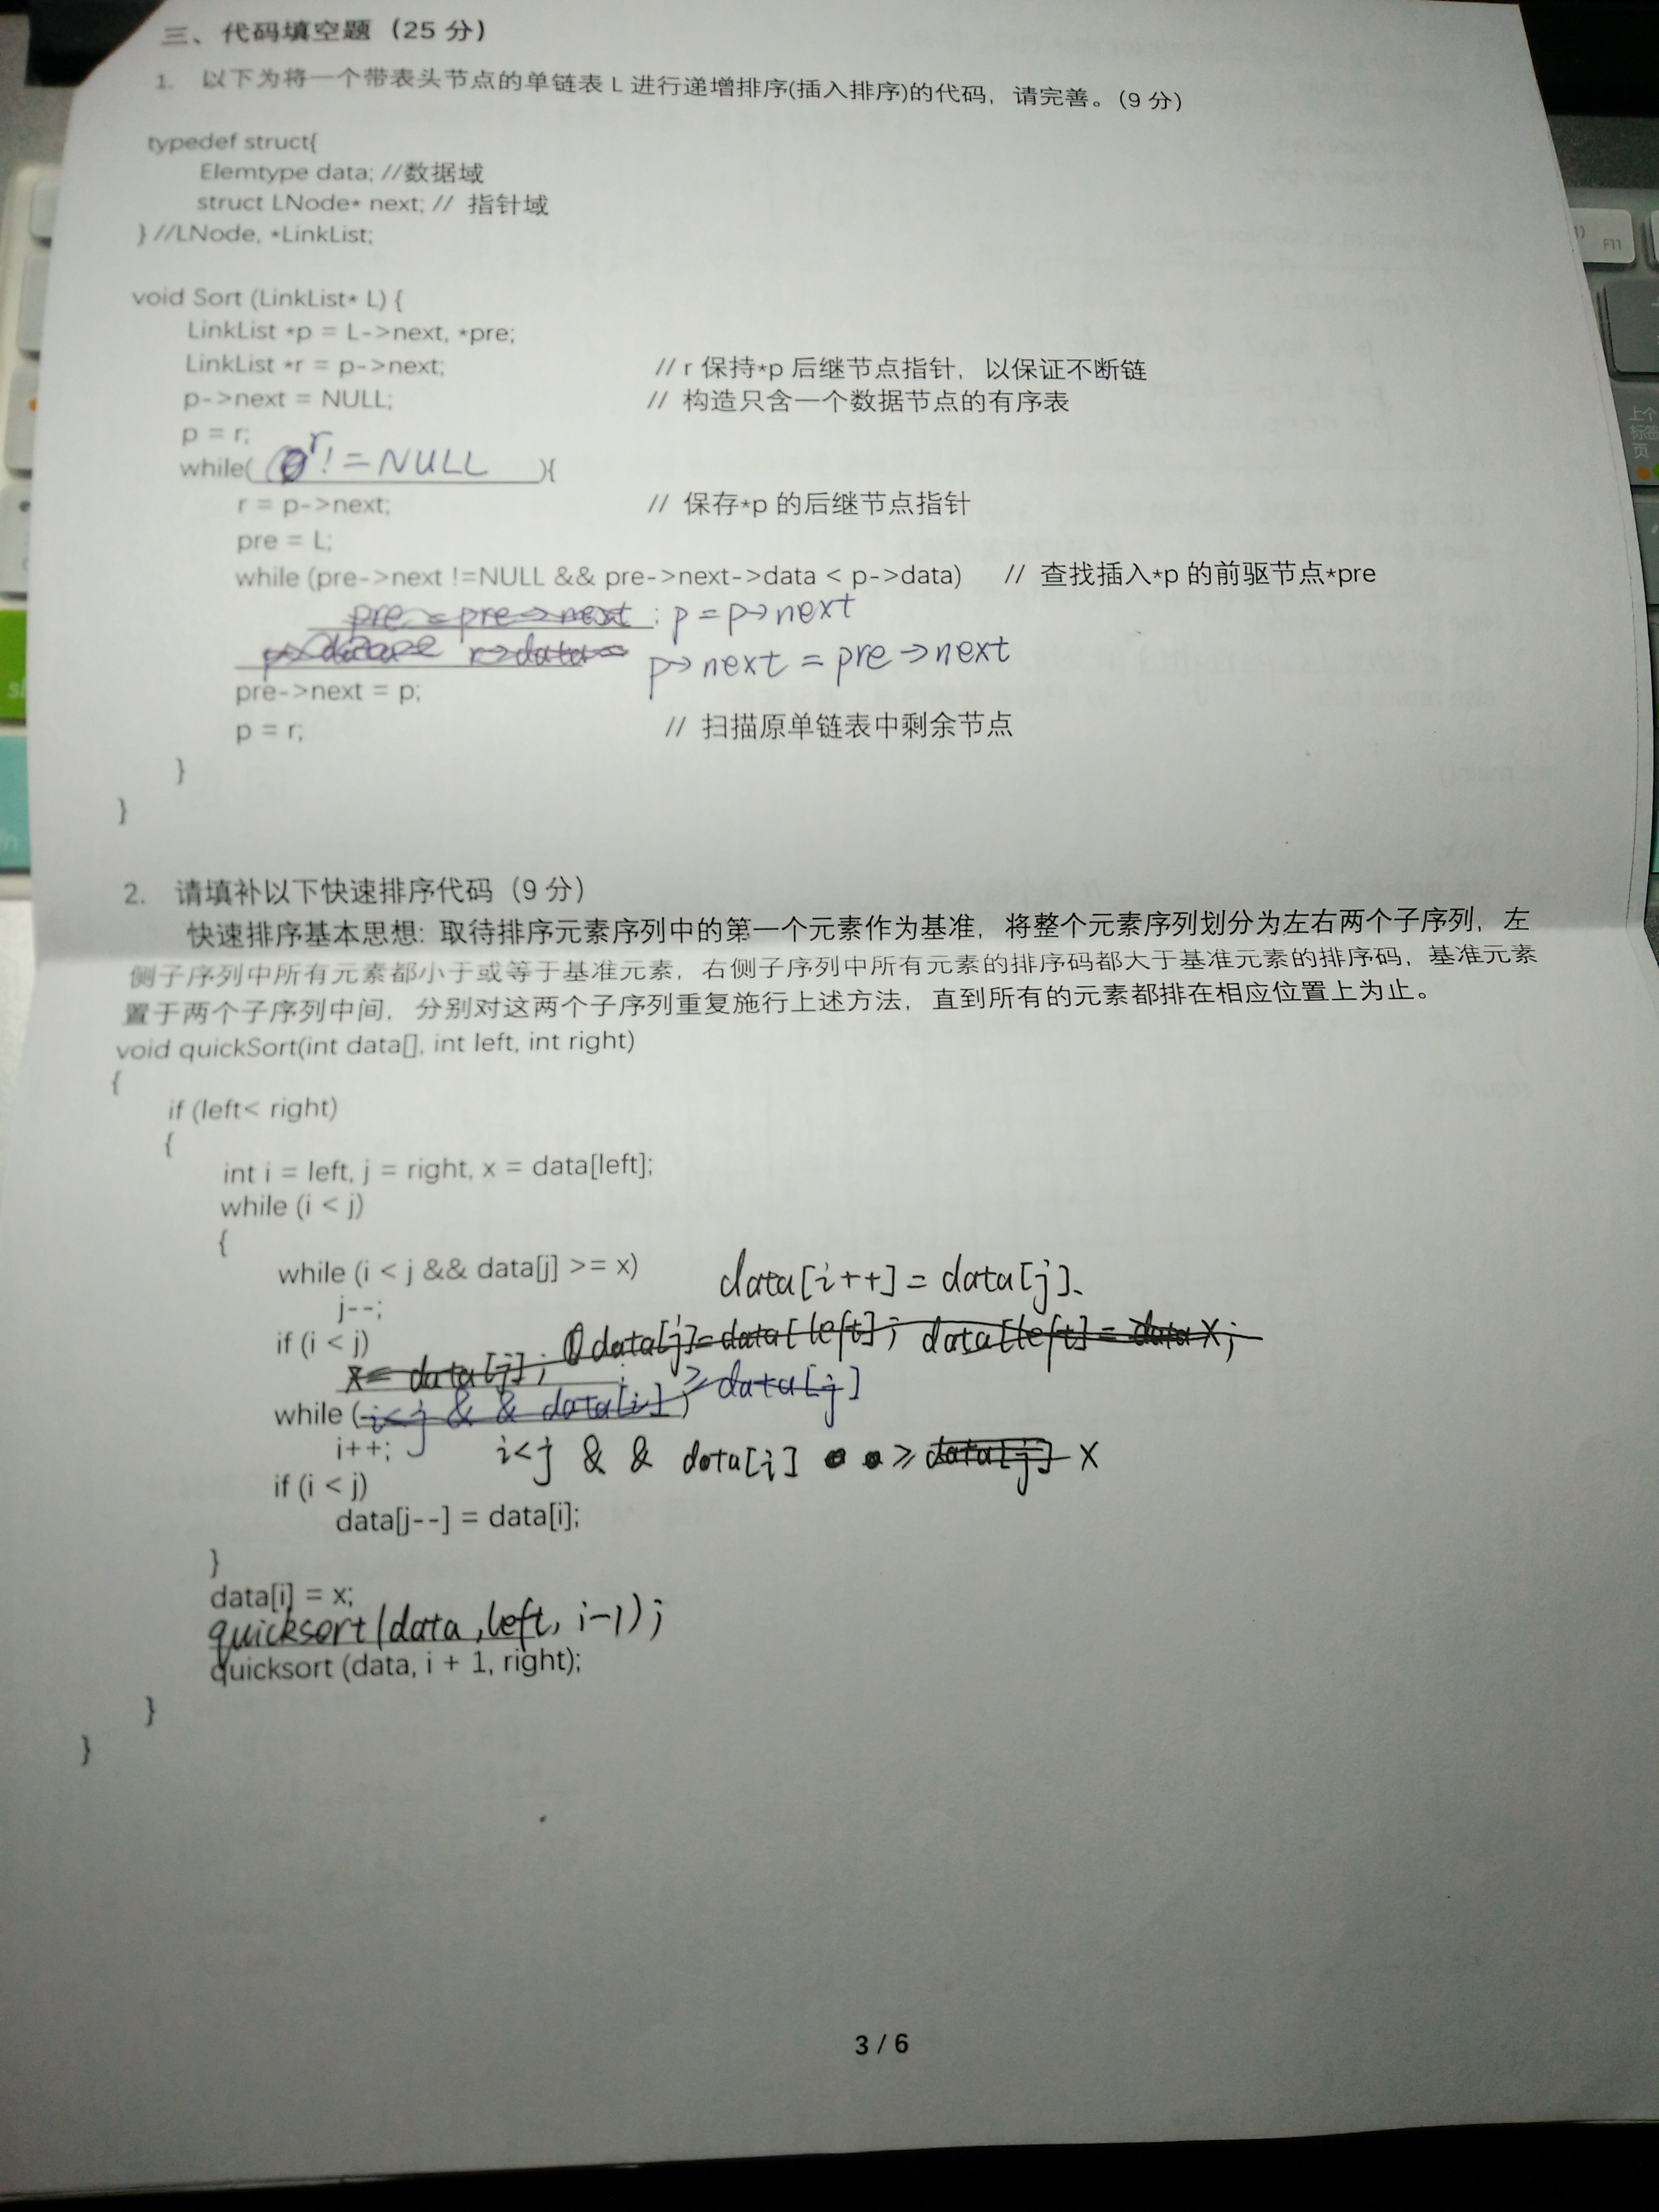 三、代码填空题（25 分）
1. 以下为将一个带表头节点的单链表 L 进行递增排序(插入排序)的代码，请完善。（9 分）
typedef struct{
Elemtype data; //数据域
struct LNode* next; // 指针域
} //LNode, *LinkList;
void Sort (LinkList* L) {
LinkList *p = L->next, *pre;
LinkList *r = p->next; // r 保持*p 后继节点指针，以保证不断链
p->next = NULL; // 构造只含一个数据节点的有序表
p = r;
while( r! = NULL ){
r = p->next; // 保存*p 的后继节点指针
pre = L;
while (pre->next !=NULL && pre->next->data < p->data) // 查找插入*p 的前驱节点*pre
pre = pre->next ; p = p->next
p->next = pre->next
pre->next = p;
p = r; // 扫描原单链表中剩余节点
}
}
2. 请填补以下快速排序代码（9 分）
快速排序基本思想: 取待排序元素序列中的第一个元素作为基准，将整个元素序列划分为左右两个子序列，左
侧子序列中所有元素都小于或等于基准元素，右侧子序列中所有元素的排序码都大于基准元素的排序码，基准元素
置于两个子序列中间，分别对这两个子序列重复施行上述方法，直到所有的元素都排在相应位置上为止。
void quickSort(int data[], int left, int right)
{
if (left< right)
{
int i = left, j = right, x = data[left];
while (i < j)
{
while (i < j && data[j] >= x) data[i++] = data[j].
j--;
if (i < j) data[j]=data[left]; data[left]=data x;
x= data[j];
while (i<j && data[i]) ≥ data[j]
i++; i<j && data[i] ≥ data[j] x
if (i < j)
data[j--] = data[i];
}
data[i] = x;
quicksort(data,left, i-1);
quicksort (data, i + 1, right);
}
}
3 / 6